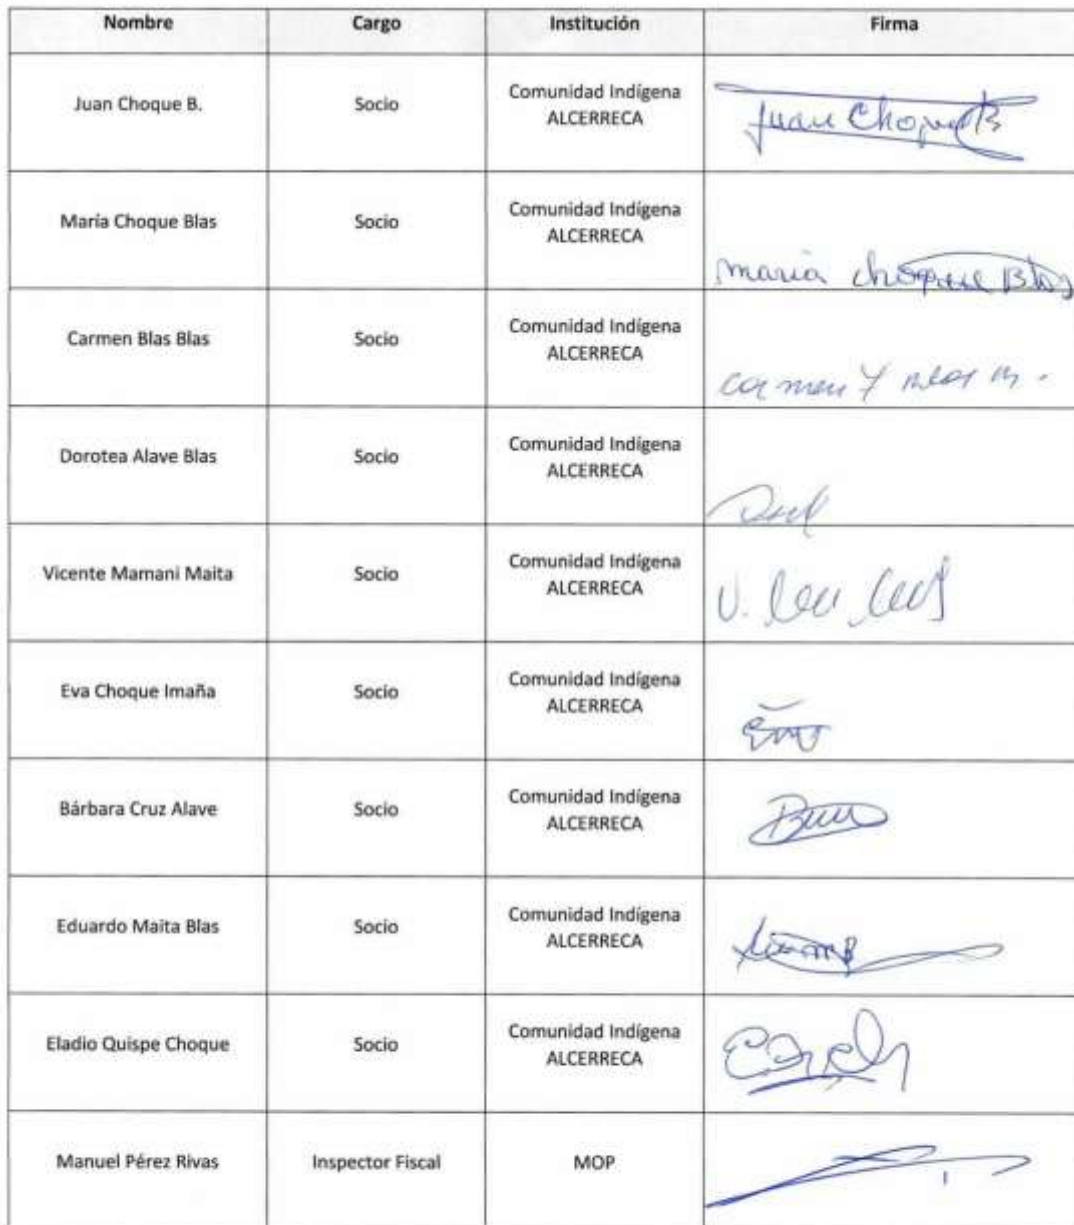 Nombre Cargo Institución Firma
Juan Choque B. Socio Comunidad Indígena
ALCERRECA
Juan Choque B
María Choque Blas Socio Comunidad Indígena
ALCERRECA
maria choque Blas
Carmen Blas Blas Socio Comunidad Indígena
ALCERRECA
Carmen Y
Dorotea Alave Blas Socio Comunidad Indígena
ALCERRECA
Vicente Mamani Maita Socio Comunidad Indígena
ALCERRECA
V.
Eva Choque Imaña Socio Comunidad Indígena
ALCERRECA
Bárbara Cruz Alave Socio Comunidad Indígena
ALCERRECA
Eduardo Maita Blas Socio Comunidad Indígena
ALCERRECA
Eladio Quispe Choque Socio Comunidad Indígena
ALCERRECA
Manuel Pérez Rivas Inspector Fiscal MOP